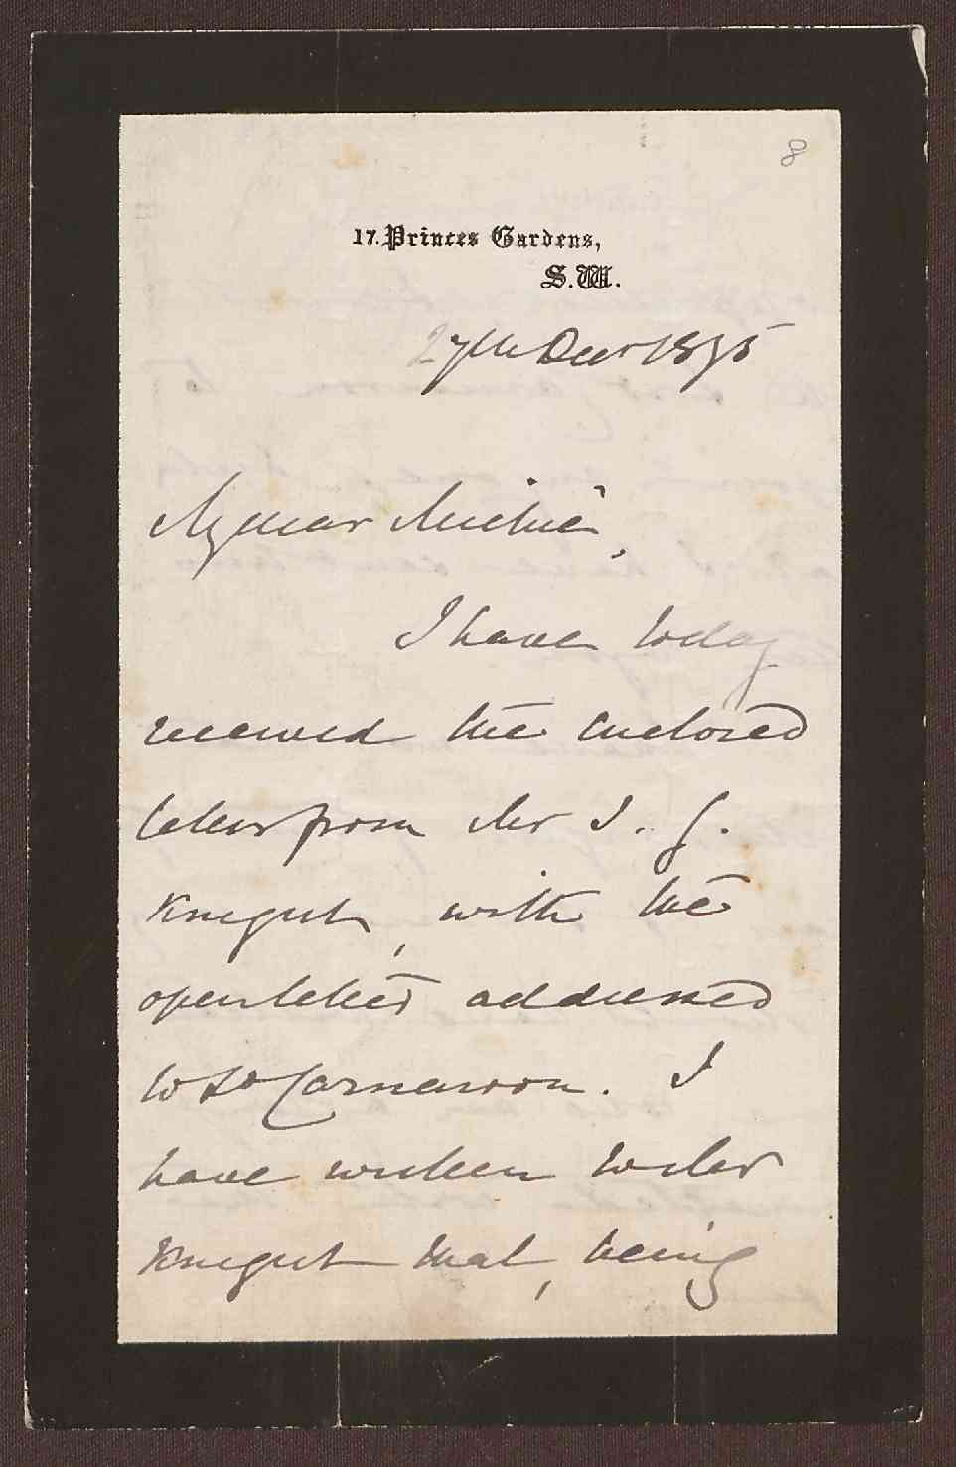 8
17. Princes Gardens,
S.W.
27th Decr 1875
My dear Michie,
I have today
received the enclosed
letter from Mr J. G.
Knight, with the
open letter addressed
to Ld Carnarvon. I
have written to Mr
Knight that, being